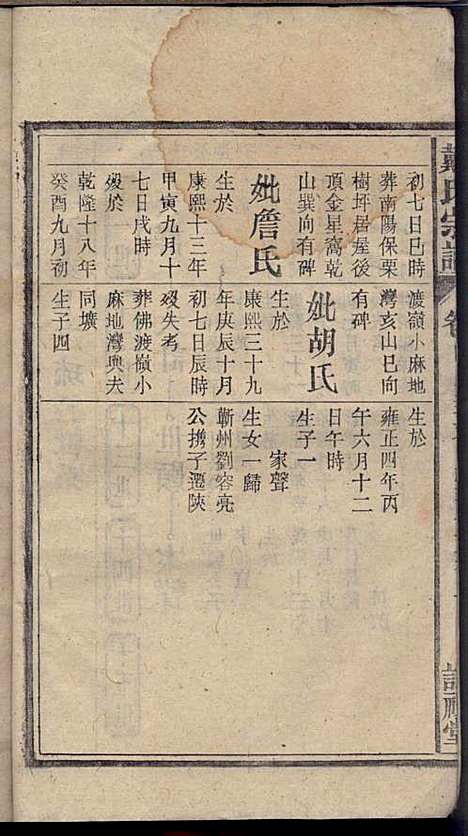 初七日巳時
葬南陽保栗
樹坪居屋後
頂金星窩乾
山巽向有碑
妣詹氏
生於
康熙十三年
甲寅九月十
七日戌時
歿於
乾隆十八年
癸酉九月初
渡嶺小麻地
灣亥山巳向
有碑
妣胡氏
生於
康熙三十九
年庚辰十月
初七日辰時
歿失考
葬佛渡嶺小
麻地灣與夫
同壙
生子四
生於
雍正四年丙
午六月十二
日午時
生子一
家聲
生女一歸
蘄州劉容亮
公攜子遷陝
戴氏宗譜
卷
註禮堂